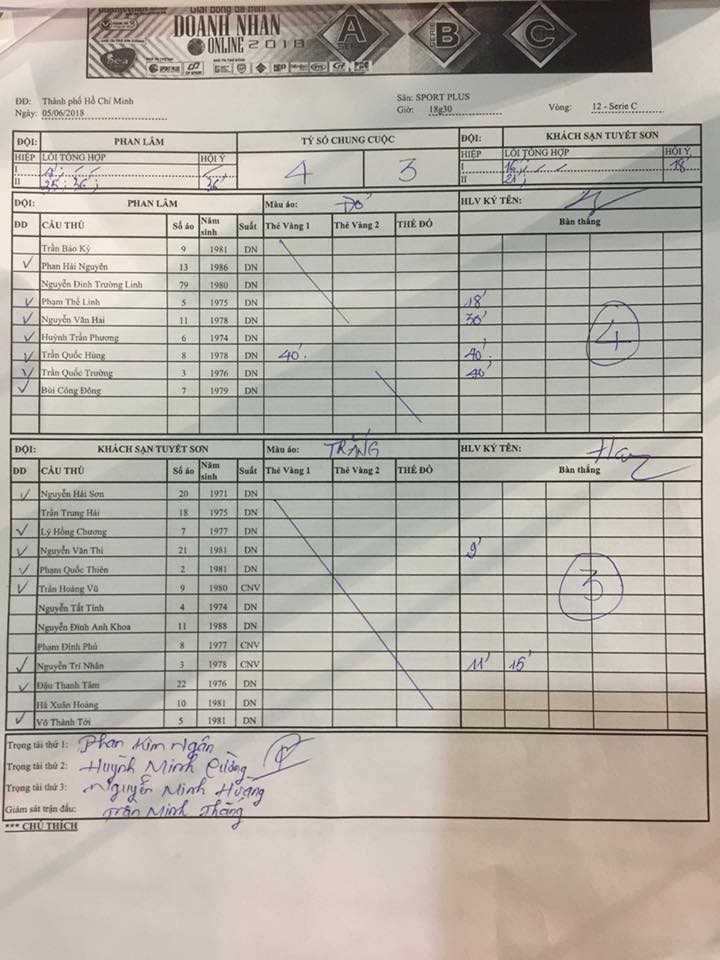 DOANH NHÂN
ONLINE 2018
A SERIE B SERIE C
ĐĐ: Thành phố Hồ Chí Minh Sân: SPORT PLUS
Ngày: 05/06/2018 Giờ: 18g30 Vòng: 12 - Serie C
ĐỘI: PHAN LÂM TỶ SỐ CHUNG CUỘC ĐỘI: KHÁCH SẠN TUYẾT SƠN
HIỆP LỖI TỔNG HỢP HỘI Ý 4 3 HIỆP LỖI TỔNG HỢP HỘI Ý
I 4' I 16' 18'
II 35' 36' 36' II 21'
ĐỘI: PHAN LÂM Màu áo: Đỏ HLV KÝ TÊN:
ĐD CẦU THỦ Số áo Năm sinh Suất Thẻ Vàng 1 Thẻ Vàng 2 THẺ ĐỎ Bàn thắng
Trần Bảo Kỳ 9 1981 DN
✓ Phan Hải Nguyên 13 1986 DN
Nguyễn Đình Trường Linh 79 1980 DN
✓ Phạm Thế Linh 5 1975 DN 18'
✓ Nguyễn Văn Hải 11 1978 DN 30'
✓ Huỳnh Trần Phương 6 1974 DN
✓ Trần Quốc Hùng 8 1978 DN 40' 40'
✓ Trần Quốc Trường 3 1976 DN 40'
✓ Bùi Công Đông 7 1979 DN
4
ĐỘI: KHÁCH SẠN TUYẾT SƠN Màu áo: TRẮNG HLV KÝ TÊN:
ĐD CẦU THỦ Số áo Năm sinh Suất Thẻ Vàng 1 Thẻ Vàng 2 THẺ ĐỎ Bàn thắng
✓ Nguyễn Hải Sơn 20 1971 DN
Trần Trung Hải 18 1975 DN
✓ Lý Hồng Chương 7 1977 DN
✓ Nguyễn Văn Thi 21 1981 DN 9'
✓ Phạm Quốc Thiên 2 1981 DN
✓ Trần Hoàng Vũ 9 1980 CNV
Nguyễn Tất Tính 4 1974 DN
Nguyễn Đình Anh Khoa 11 1988 DN
Phạm Đình Phú 8 1977 CNV
✓ Nguyễn Trí Nhân 3 1978 CNV 11' 15'
✓ Đậu Thanh Tâm 22 1976 DN
Hà Xuân Hoàng 10 1981 DN
✓ Võ Thành Tới 5 1981 DN
3
Trọng tài thứ 1: Phan Kim Ngân
Trọng tài thứ 2: Huỳnh Minh Cường
Trọng tài thứ 3: Nguyễn Minh
Giám sát trận đấu: Trần Minh Thắng
*** CHÚ THÍCH